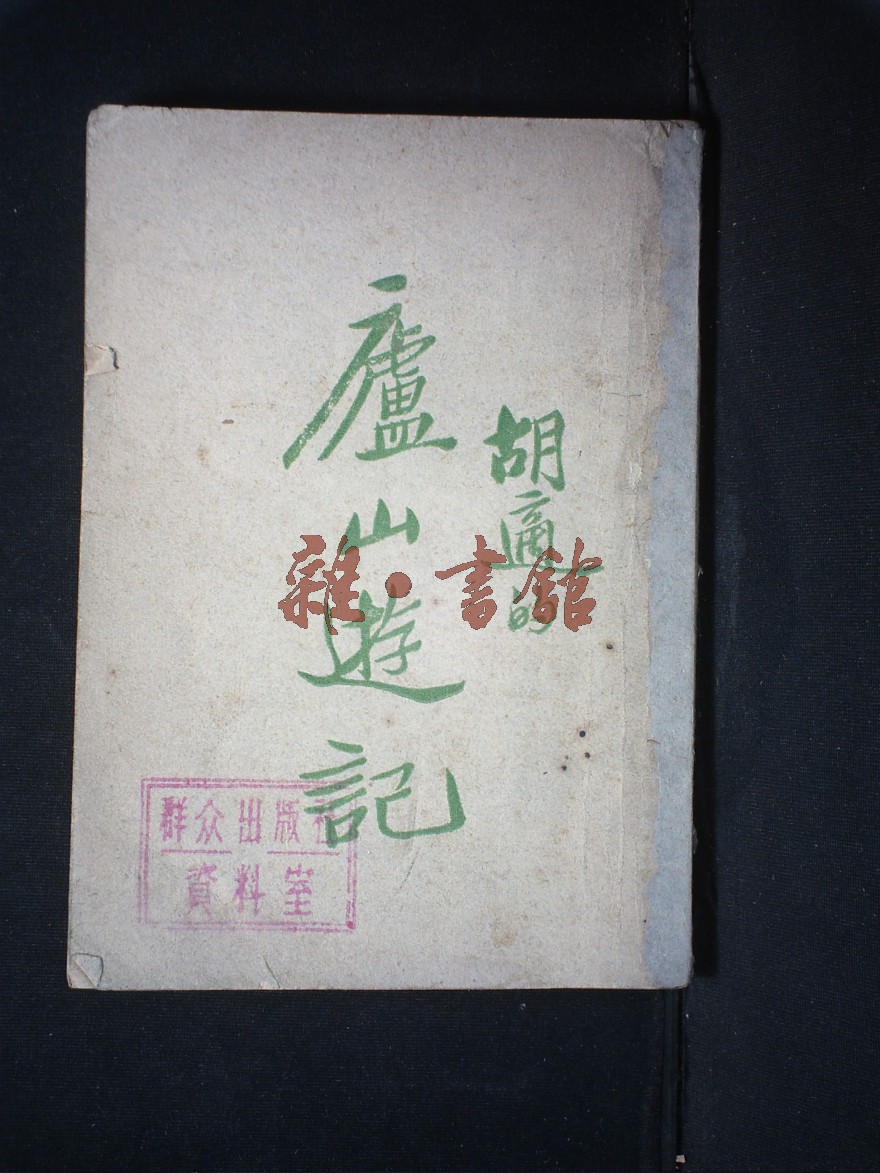 胡適的
廬山遊記
雜·書館
群众出版社
資料室